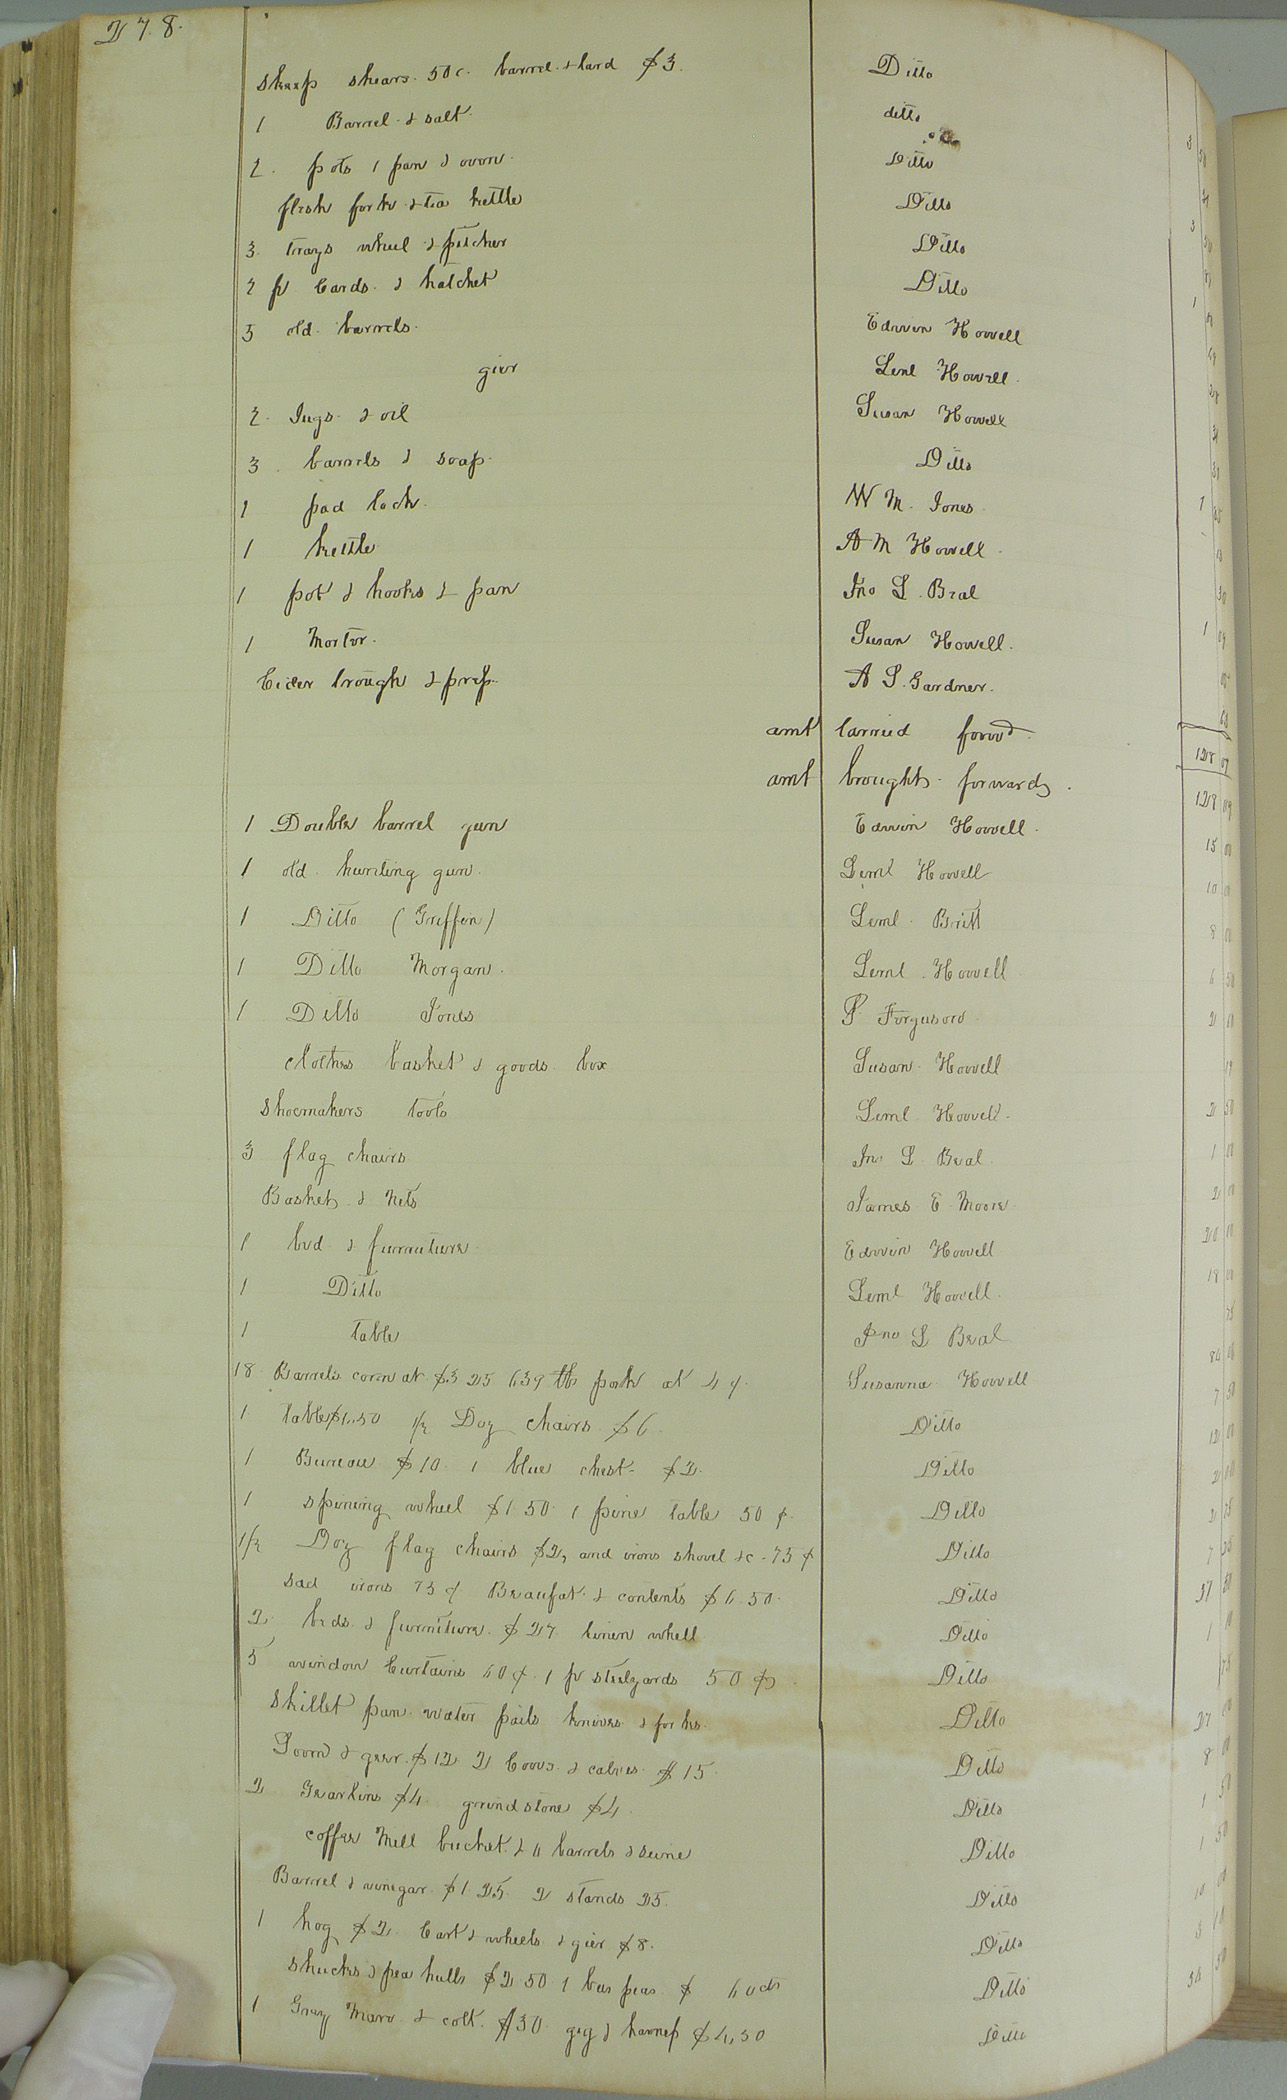 278.
sheep shears. 50 c. barrel & lard $3. Ditto
1 Barrel & salt. ditto 3 50
2. pots 1 pan & oven. Ditto
flesh fork & tea kettle Ditto
3. trays wheel & pitcher Ditto
2 pr Cards. & hatchet Ditto
5 old barrels. Edwin Howell
gier Leml Howell.
2. Jugs & oil Susan Howell
3. barrels & soap. Ditto
1 pad lock. W M. Jones
1 kettle A M Howell.
1 pot & hooks & pan Jno L. Beal
1 Morter. Susan Howell.
Cider trough & press. A S. Gardner.
amt carried forwd. 128 09
amt brought forward. 128 09
1 Double barrel gun Edwin Howell. 15 00
1 old hunting gun. Leml Howell 10 00
1 Ditto (Griffen) Leml Britt 8 00
1 Ditto Morgan. Leml Howell 6 50
1 Ditto Jones P Ferguson
clothes basket & goods box Susan Howell
Shoemakers tools Leml Howell. 2 50
3 flag chairs Jno L Beal 1 00
Basket & Nets James E Moore 2 00
1 bed & furniture Edwin Howell 20 00
1 Ditto Leml Howell. 18 00
1 table Jno L Beal 75
18 Barrels corn at $3 25 639 lb pork at 4 ¢. Susanna Howell
1 table $1.50 1/2 Doz chairs $6. Ditto 7 50
1 Bureau $10. 1 blue chest $2. Ditto 12 00
1 spining wheel $1 50 1 pine table 50 ¢. Ditto 2 00
1/2 Doz flag chairs $2, and irons shovel &c. 75 ¢ Ditto 2 75
sad irons 75 ¢. Beaufat & contents $6.50. Ditto 7 25
2 beds & furniture. $27. linen whell Ditto
5 window Curtains 60 ¢. 1 pr steelyards 50 ¢. Ditto 1 10
Skillet pan water pails knives & forks. Ditto
Loom & geer. $12 2 Cows & calves $15. Ditto 27 00
2 Yearlins $4. grindstone $4. Ditto 8 00
coffee Mill bucket & 6 barrels & seine Ditto
Barrel & vinegar. $1.25. 2 stands 25. Ditto 1 50
1 hog $2. Cart & wheels & gier $8. Ditto 10 00
shucks & pea hulls $2 50 1 bus peas $ 60 cts Ditto 3 10
1 Gray Mare & colt. $30. gig & harness $4,50 Ditto